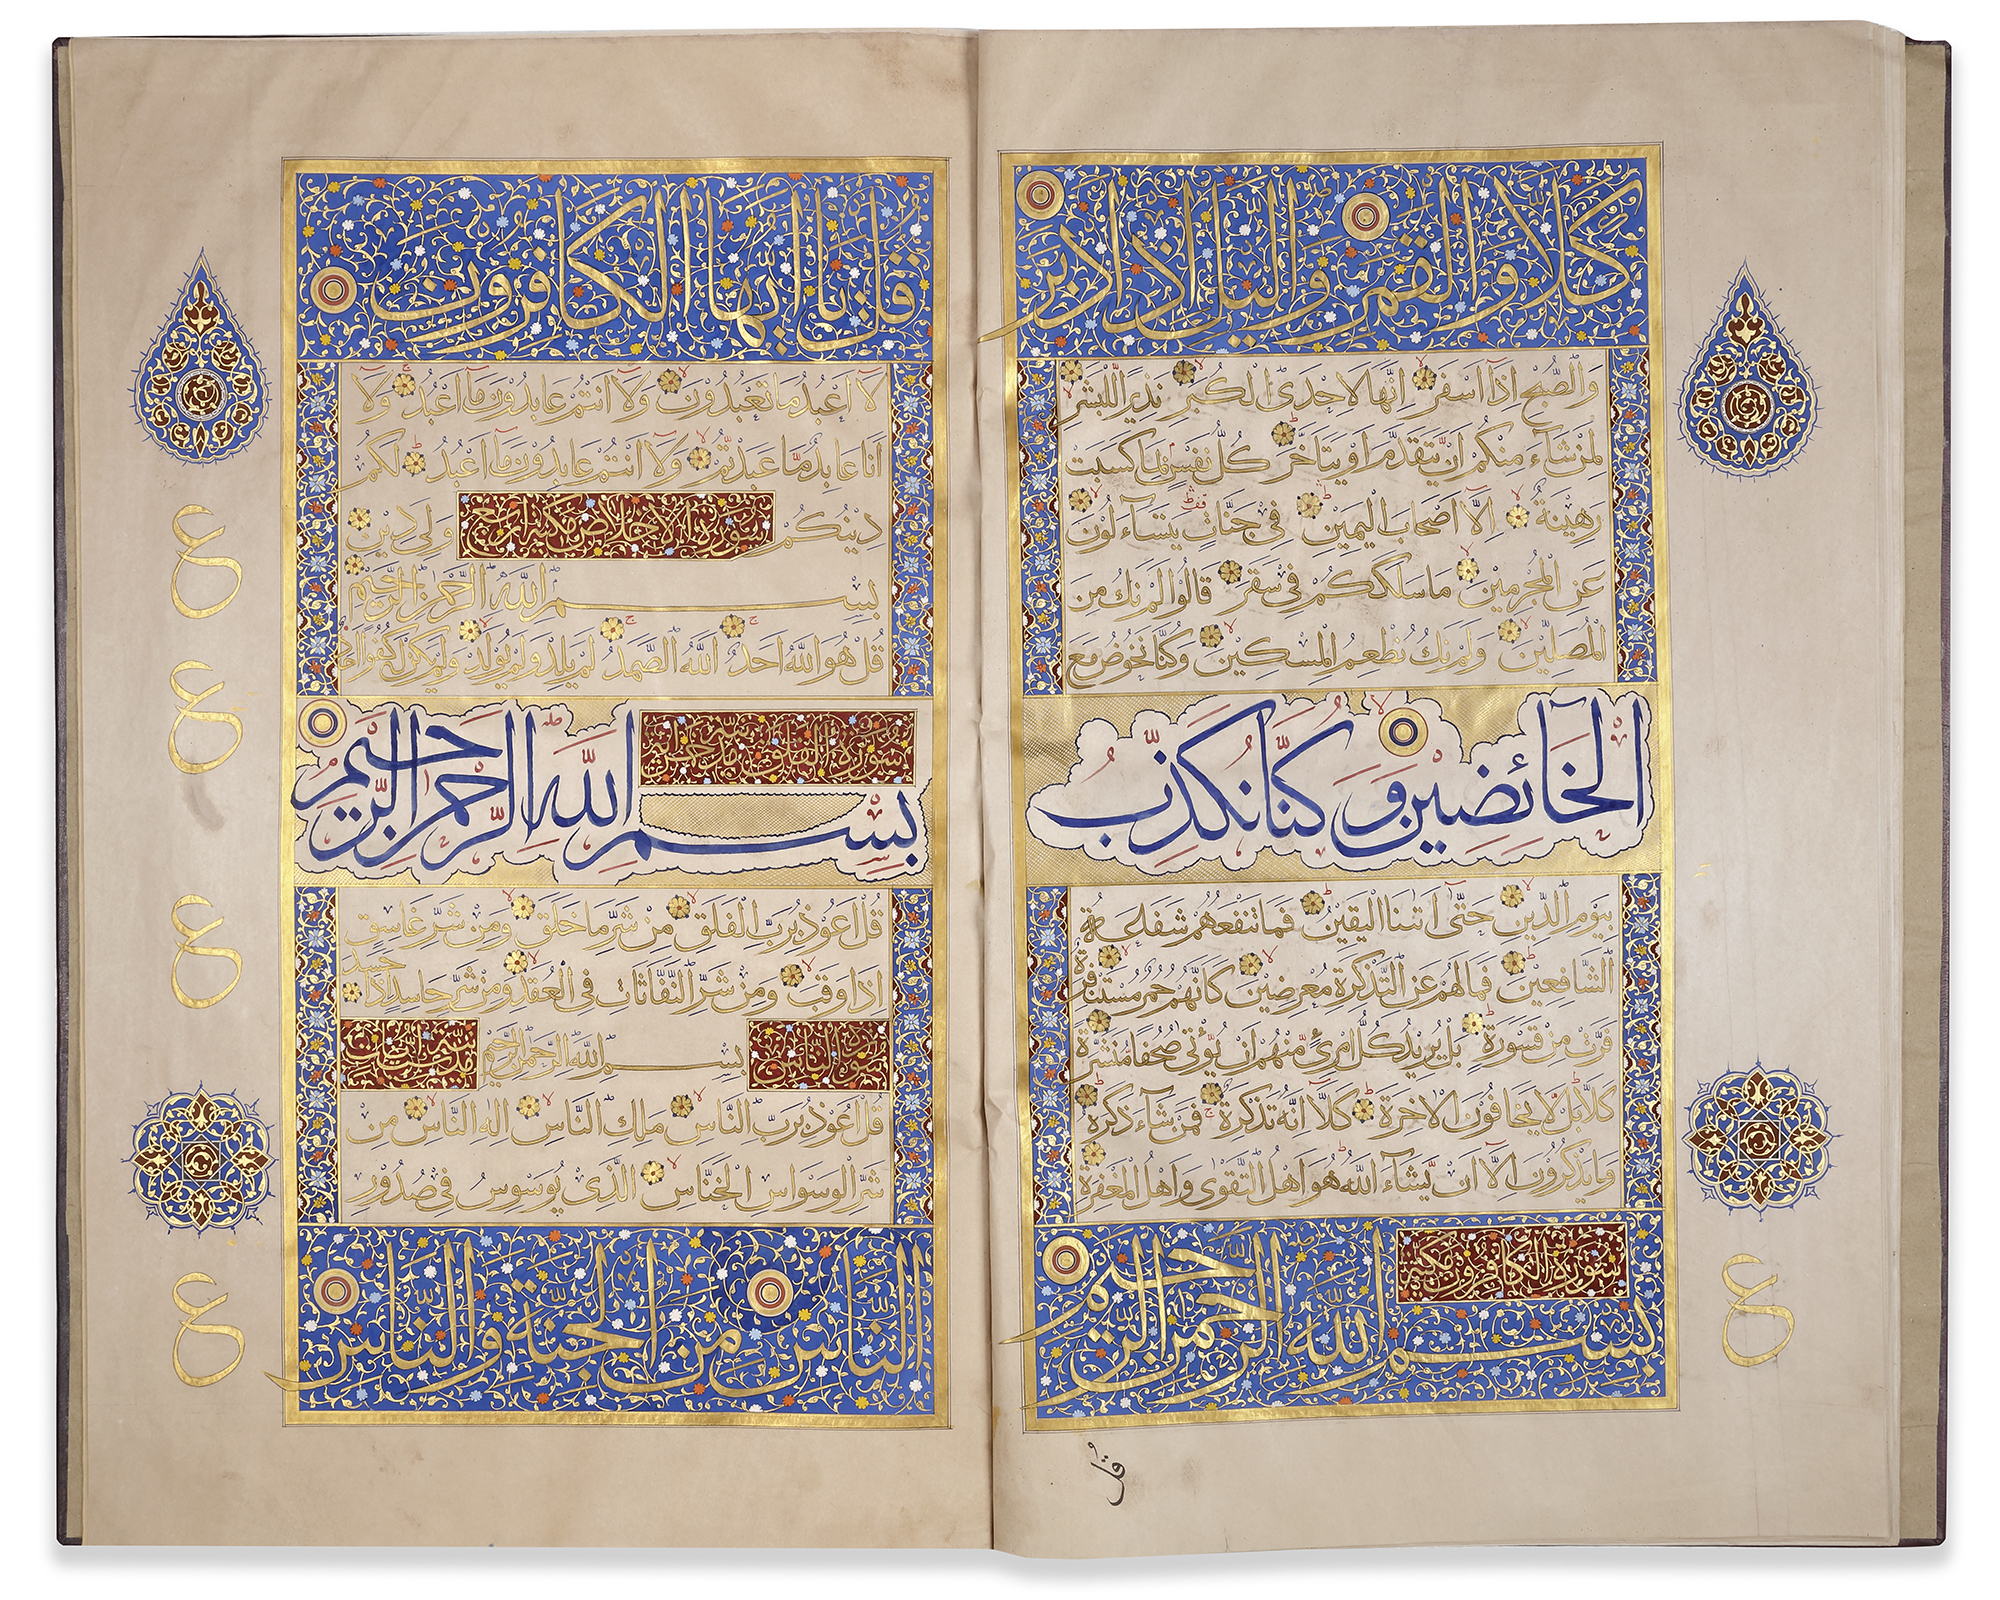 كلا والقمر والليل اذ ادبر
والصبح اذا اسفر انها لاحدى الكبر نذيرا للبشر
لمن شاء منكم ان يتقدم او يتاخر كل نفس بما كسبت
رهينة الا اصحاب اليمين في جنات يتساءلون
عن المجرمين ما سلككم في سقر قالوا لم نك من
المصلين ولم نك نطعم المسكين وكنا نخوض مع
الخائضين وكنا نكذب
بيوم الدين حتى اتنا اليقين فما تنفعهم شفاعة
الشافعين فما لهم عن التذكرة معرضين كانهم حمر مستنفرة
فرت من قسورة بل يريد كل امرئ منهم ان يؤتى صحفا منشرة
كلا بل لا يخافون الاخرة كلا انه تذكرة فمن شاء ذكره
وما يذكرون الا ان يشاء الله هو اهل التقوى واهل المغفرة
سورة الكافرون مكية
بسم الله الرحمن الرحيم
قل
قل يا ايها الكافرون
لا اعبد ما تعبدون ولا انتم عابدون ما اعبد ولا
انا عابد ما عبدتم ولا انتم عابدون ما اعبد لكم
دينكم ولي دين
سورة الاخلاص مكية اربع
بسم الله الرحمن الرحيم
قل هو الله احد الله الصمد لم يلد ولم يولد ولم يكن له كفوا احد
سورة الفلق
بسم الله الرحمن الرحيم
قل اعوذ برب الفلق من شر ما خلق ومن شر غاسق
اذا وقب ومن شر النفاثات في العقد ومن شر حاسد اذا حسد
سورة الناس
بسم الله الرحمن الرحيم
قل اعوذ برب الناس ملك الناس اله الناس من
شر الوسواس الخناس الذي يوسوس في صدور
الناس من الجنة والناس
ع
ع
ع
ع
ع